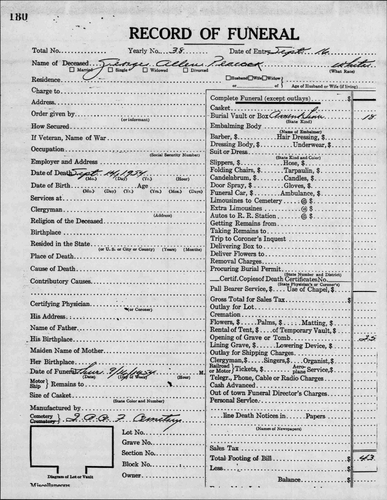 180
RECORD OF FUNERAL
Total No. Yearly No. 38 Date of Entry Sept. 16
Name of Deceased George Allen Peacock White
Married Single Widowed Divorced (What Race)
Residence Husband Wife Widow
of Age of Husband or Wife (if living)
Charge to
Address
Order given by
(or informant)
How Secured
If Veteran, Name of War
Occupation
(Social Security Number)
Employer and Address
Date of Death Sept. 14, 1954
(Mo.) (Day) (Yr.) (Hour)
Date of Birth Age
(Mo.) (Day) (Yr.)
Services at
Clergyman
(Address)
Religion of the Deceased
Birthplace
Resided in the State
(or U. S. or City or County) (Years) (Months)
Place of Death
Cause of Death
Contributory Causes
Certifying Physician
or Coroner
His Address
Name of Father
His Birthplace
Maiden Name of Mother
Her Birthplace
Date of Funeral 9/16/1954 M.
(Date) (Day) (Hour)
Motor Ship Remains to
Size of Casket
(State Color and Number)
Manufactured by
Cemetery Crematory I.O.O.F. Cemetery
Lot No.
Grave No.
Section No.
Block No.
Owner
Diagram of Lot or Vault
Miscellaneous
Complete Funeral (except outlays) $
Casket
Burial Vault or Box 18
(State Kind)
Embalming Body
(Name of Embalmer)
Barber, $ Hair Dressing, $
Dressing Body, $ Underwear, $
Suit or Dress
(State Kind and Color)
Slippers, $ Hose, $
Folding Chairs, $ Tarpaulin, $
Candelabrum, $ Candles, $
Door Spray, $ Gloves, $
Funeral Car, $ Ambulance, $
Limousines to Cemetery @ $
Extra Limousines @ $
Autos to R. R. Station @ $
Getting Remains from
Taking Remains to
Trip to Coroner's Inquest
Delivering Box to
Deliver Flowers to
Removal Charges
Procuring Burial Permit
(State Number and District)
Certif. Copies of Death Certificates No.
(State Physician's or Coroner's)
Pall Bearer Service, $ Use of Chapel, $
Gross Total for Sales Tax $
Outlay for Lot
Cremation
Flowers, $ Palms, $ Matting, $
Rental of Tent, $ of Temporary Vault, $
Opening of Grave or Tomb 25
Lining Grave, $ Lowering Device, $
Outlay for Shipping Charges
Clergyman, $ Singers, $ Organist, $
Railroad or Motor Tickets, $ Aeroplane Service, $
Telegr., Phone, Cable or Radio Charges
Cash Advanced
Out of town Funeral Director's Charges
Personal Service
line Death Notices in Papers
(Names of Newspapers)
Sales Tax
Total Footing of Bill $ 43
Less
Balance $